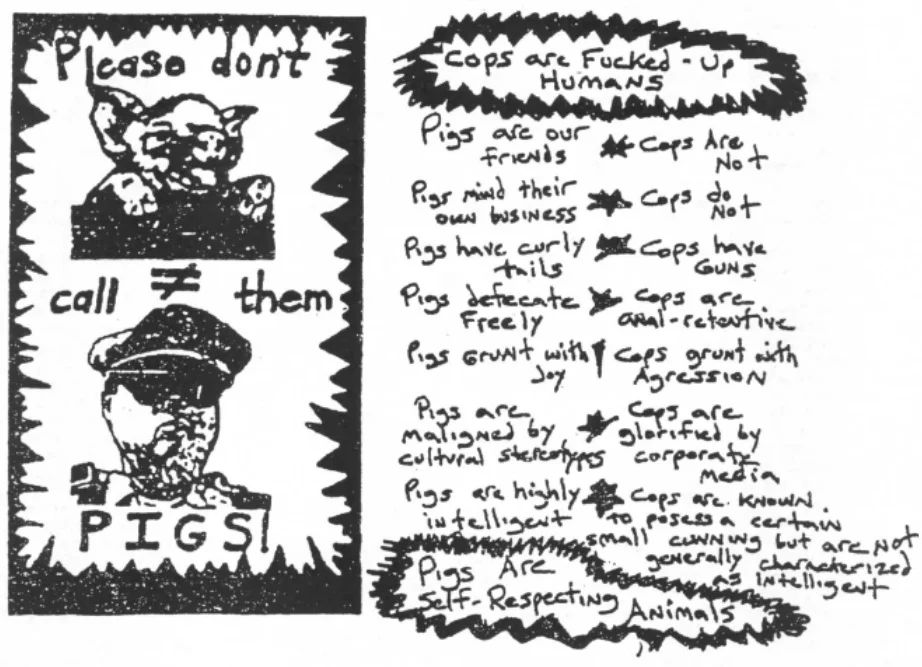 Please don't
call ≠ them
PIGS!
Cops are Fucked-Up
Humans
Pigs are our
friends
Cops Are
Not
Pigs mind their
own business
Cops do
Not
Pigs have curly
tails
Cops have
Guns
Pigs defecate
Freely
Cops are
anal-retentive
Pigs Grunt with
Joy
Cops grunt with
Agression
Pigs are
maligned by
cultural stereotypes
Cops are
glorified by
corporate
media
Pigs are highly
intelligent
Cops are known
to posess a certain
small cunning but are not
generally characterized
as intelligent
Pigs Are
Self-Respecting
Animals